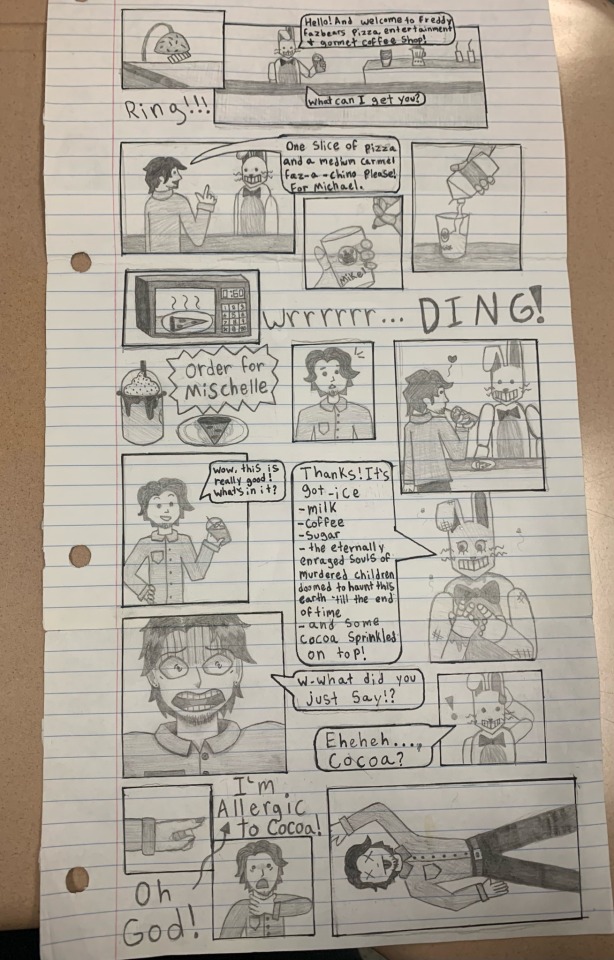 Ring!!!
Hello! And welcome to Freddy
fazbears Pizza entertainment
+ gormet coffee Shop!
What can I get you?
One Slice of pizza
and a medium carmel
faz-a-chino please!
For Michael.
Mike!
0:60
Wrrrrrr...
DING!
Order for
Mischelle
Wow, this is
really good!
What's in it?
Thanks! It's
got -ice
-milk
-coffee
-Sugar
- the eternally
enraged Souls of
murdered children
doomed to haunt this
earth 'till the end
of time
-and some
cocoa Sprinkled
on top!
W-what did you
just Say!?
Eheheh....,
Cocoa?
Oh
God!
I'm
Allergic
to Cocoa!